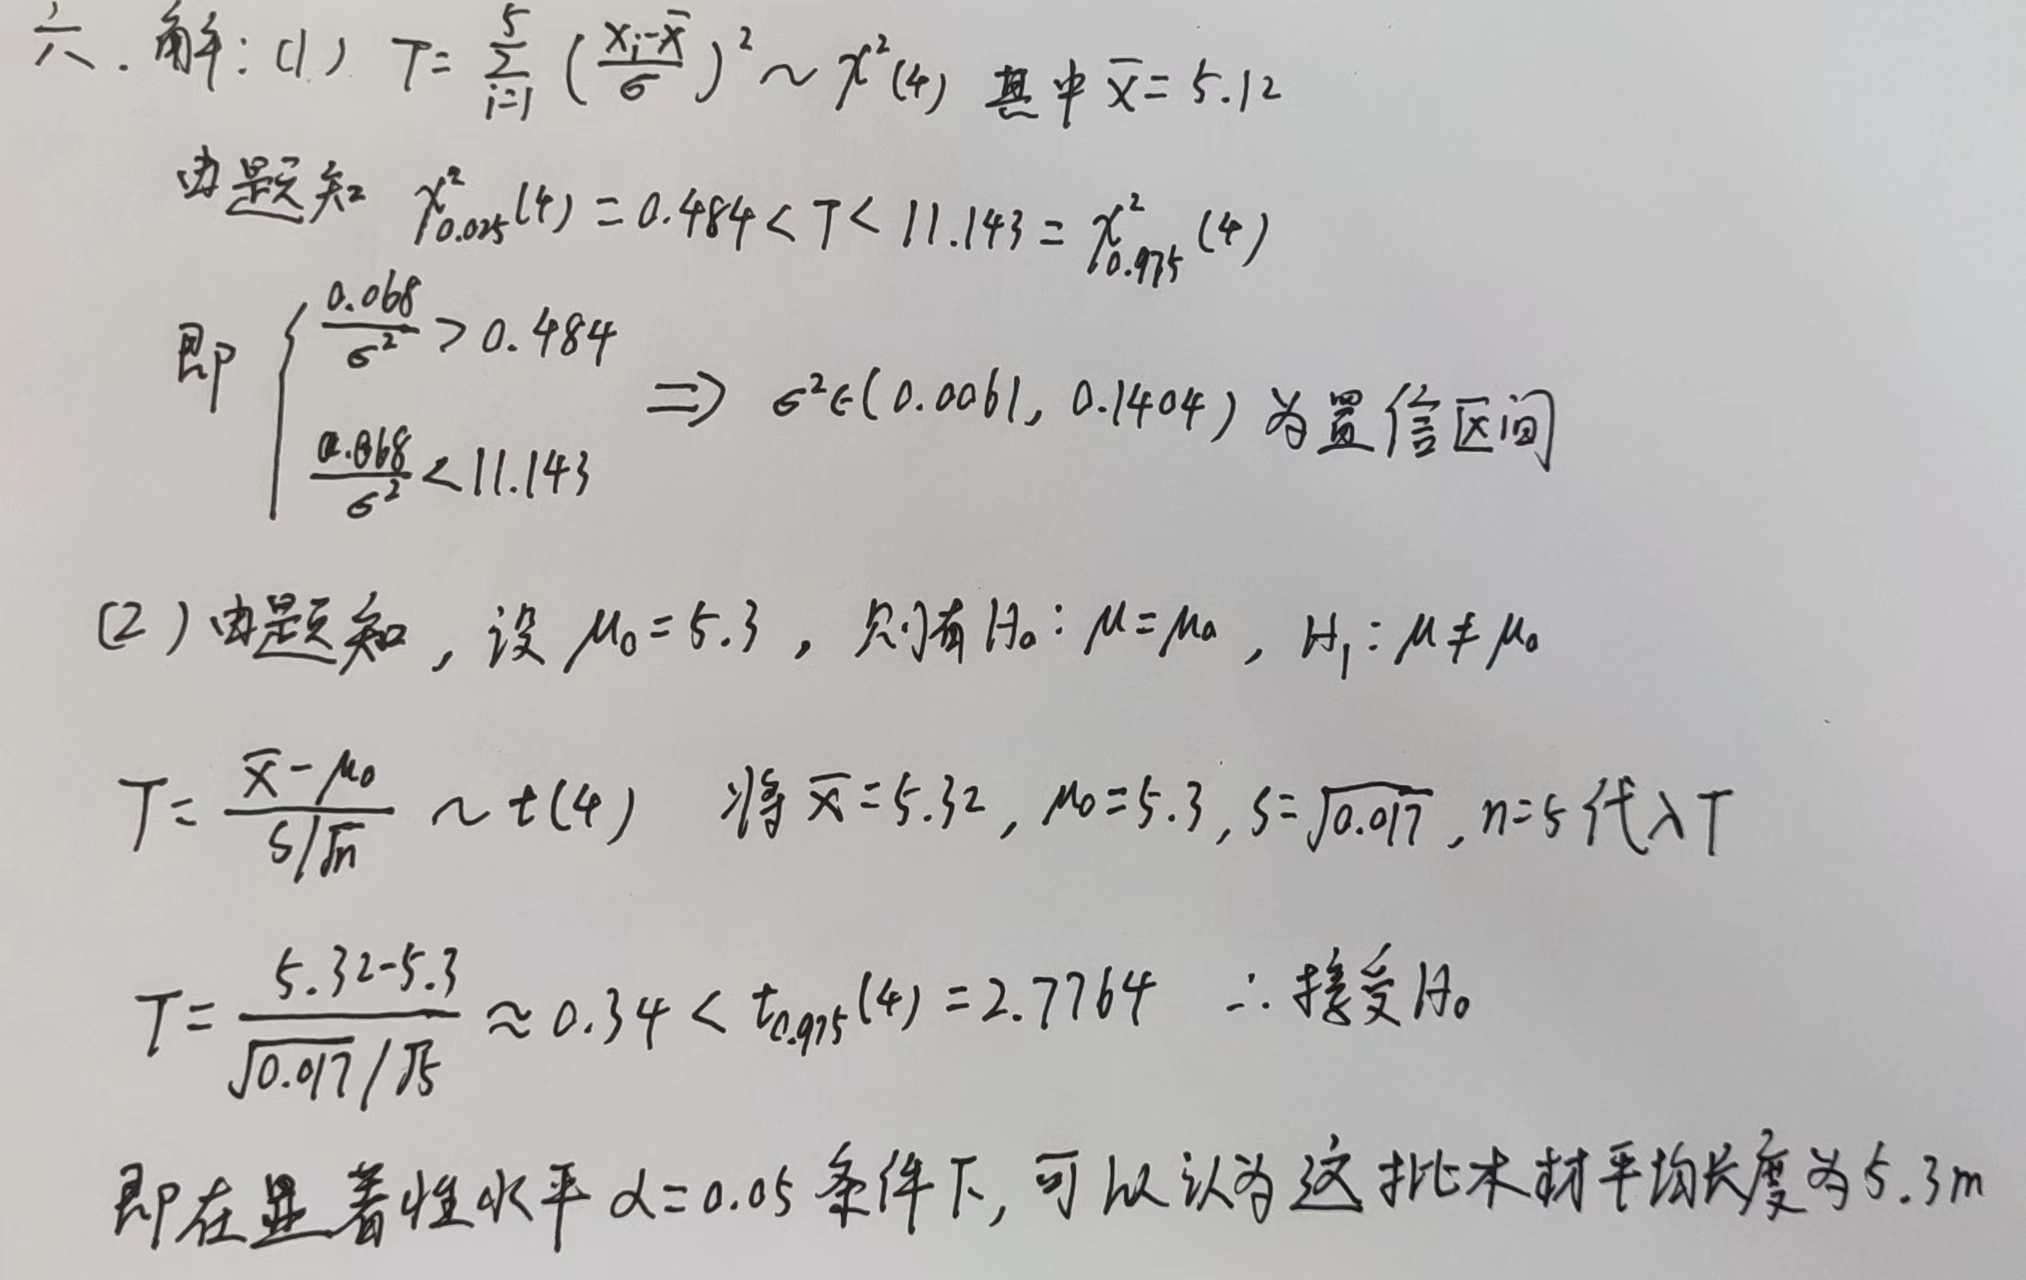 六. 解: (1) T = \sum_{i=1}^{5} (\frac{x_i - \bar{x}}{σ})^2 ~ χ^2(4) 其中 \bar{x} = 5.12
由题知 χ^2_{0.025}(4) = 0.484 < T < 11.143 = χ^2_{0.975}(4)
即 { \frac{0.068}{σ^2} > 0.484
\frac{0.068}{σ^2} < 11.143
⇒ σ^2 ∈ (0.0061, 0.1404) 为置信区间
(2) 由题知, 设 μ_0 = 5.3, 则有 H_0: μ = μ_0, H_1: μ ≠ μ_0
T = \frac{\bar{x} - μ_0}{S/\sqrt{n}} ~ t(4) 将 \bar{x} = 5.32, μ_0 = 5.3, S = \sqrt{0.017}, n = 5 代入 T
T = \frac{5.32 - 5.3}{\sqrt{0.017}/\sqrt{5}} ≈ 0.34 < t_{0.975}(4) = 2.7764 ∴ 接受 H_0
即在显著性水平 α = 0.05 条件下, 可以认为这批木材平均长度为 5.3m